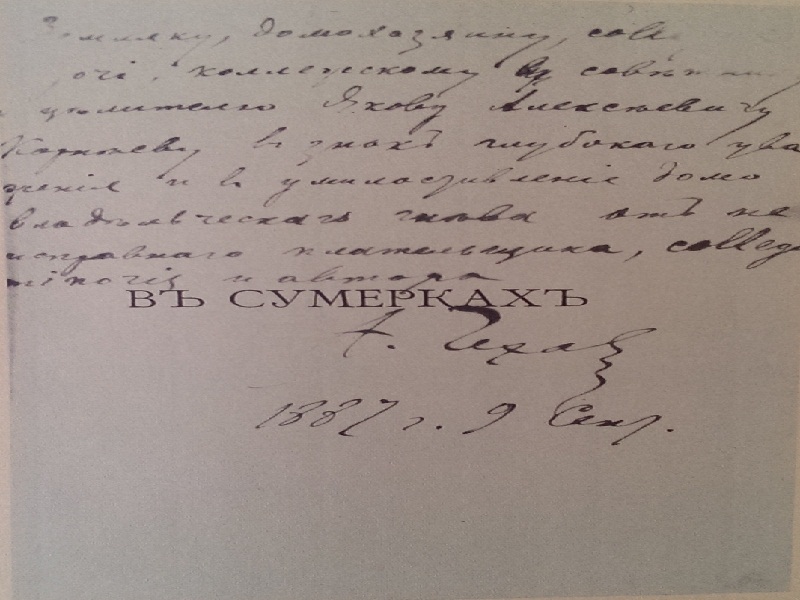 Земляку, домохозяину, colle
коллежскому совѣтнику
цѣлителю Якову Алексѣевичу
Корнѣеву въ знакъ глубокаго ува
женія и въ умилостивленіе домо
владѣльческаго гнѣва отъ не
исправнаго плательщика, colleg
и автора
ВЪ СУМЕРКАХЪ
А. Чехов
1887 г. 9 Сент.